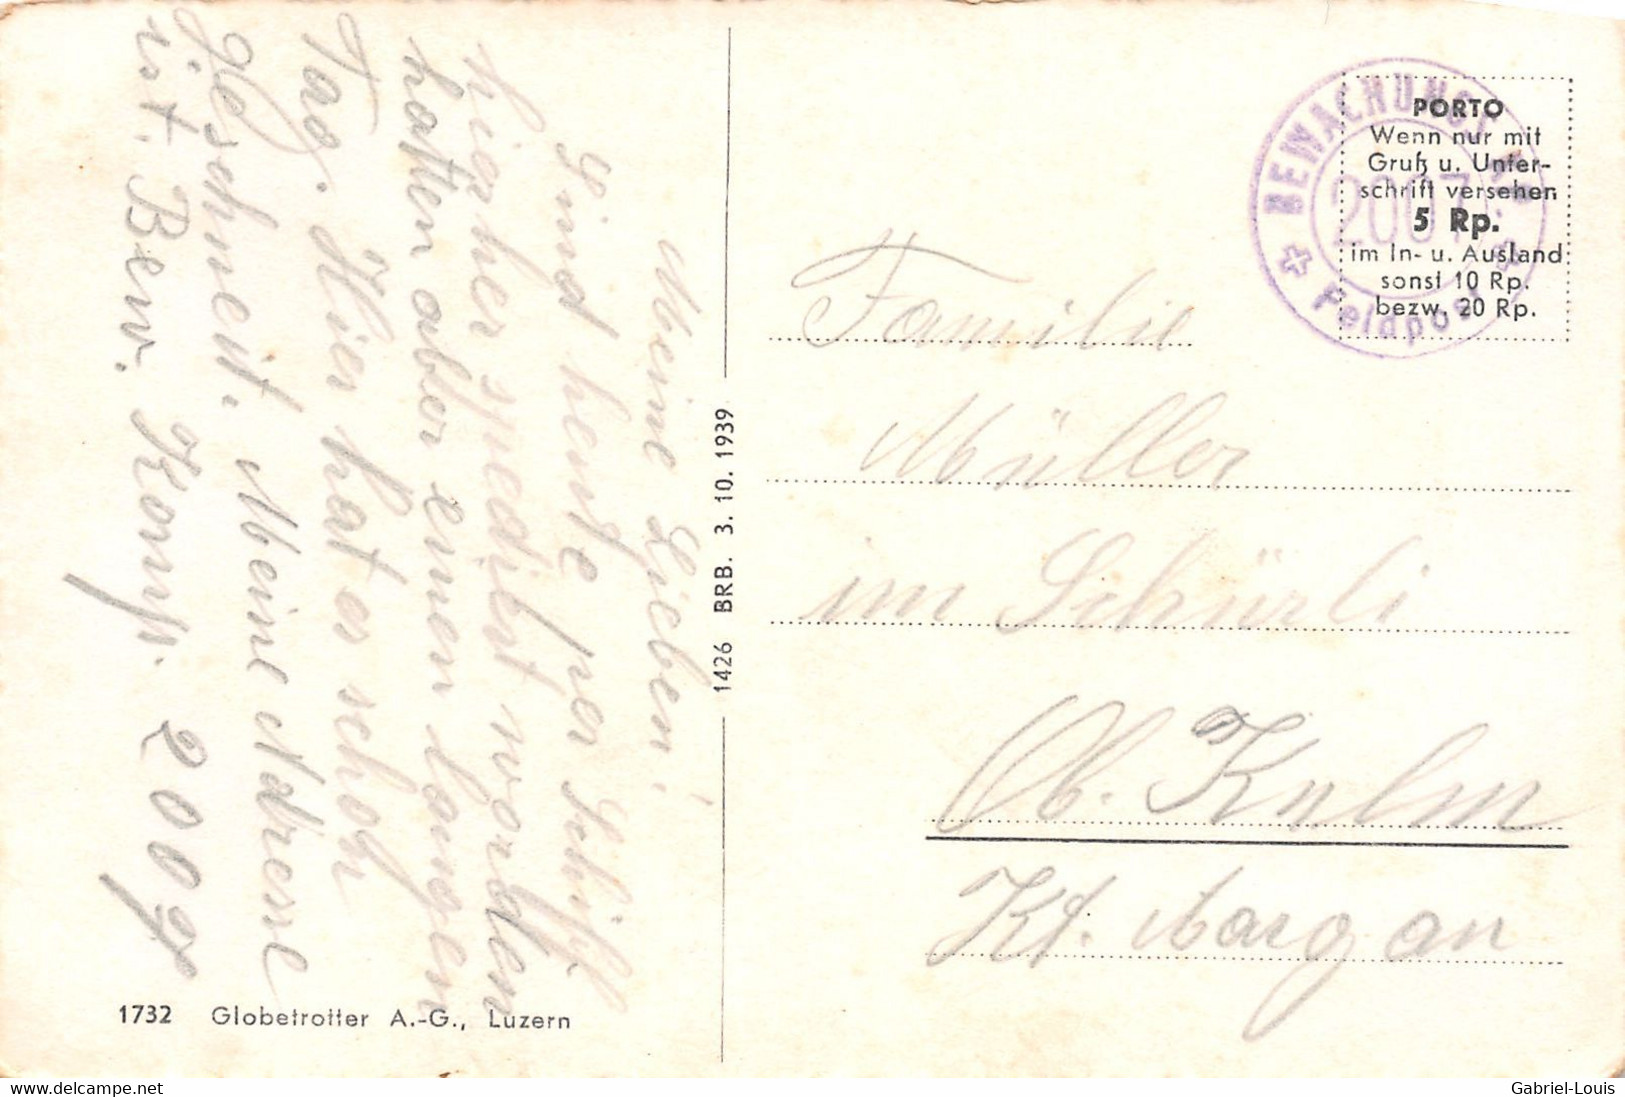 Meine Lieben!
Sind heute per Schiff
hierher spediert worden
hatten aber einen langen
Tag. Hier hat es schon
geschneit. Meine Adresse
ist. Bew. Komp. 2007
1426 BRB. 3. 10. 1939
BEWACHUNGS
2007
Feldpost
PORTO
Wenn nur mit
Gruß u. Unter-
schrift versehen
5 Rp.
im In- u. Ausland
sonst 10 Rp.
bezw. 20 Rp.
Familie
Müller
im Schürli
Ob. Kulm
Kt. Aargau
1732 Globetrotter A.-G., Luzern
www.delcampe.net
Gabriel-Louis